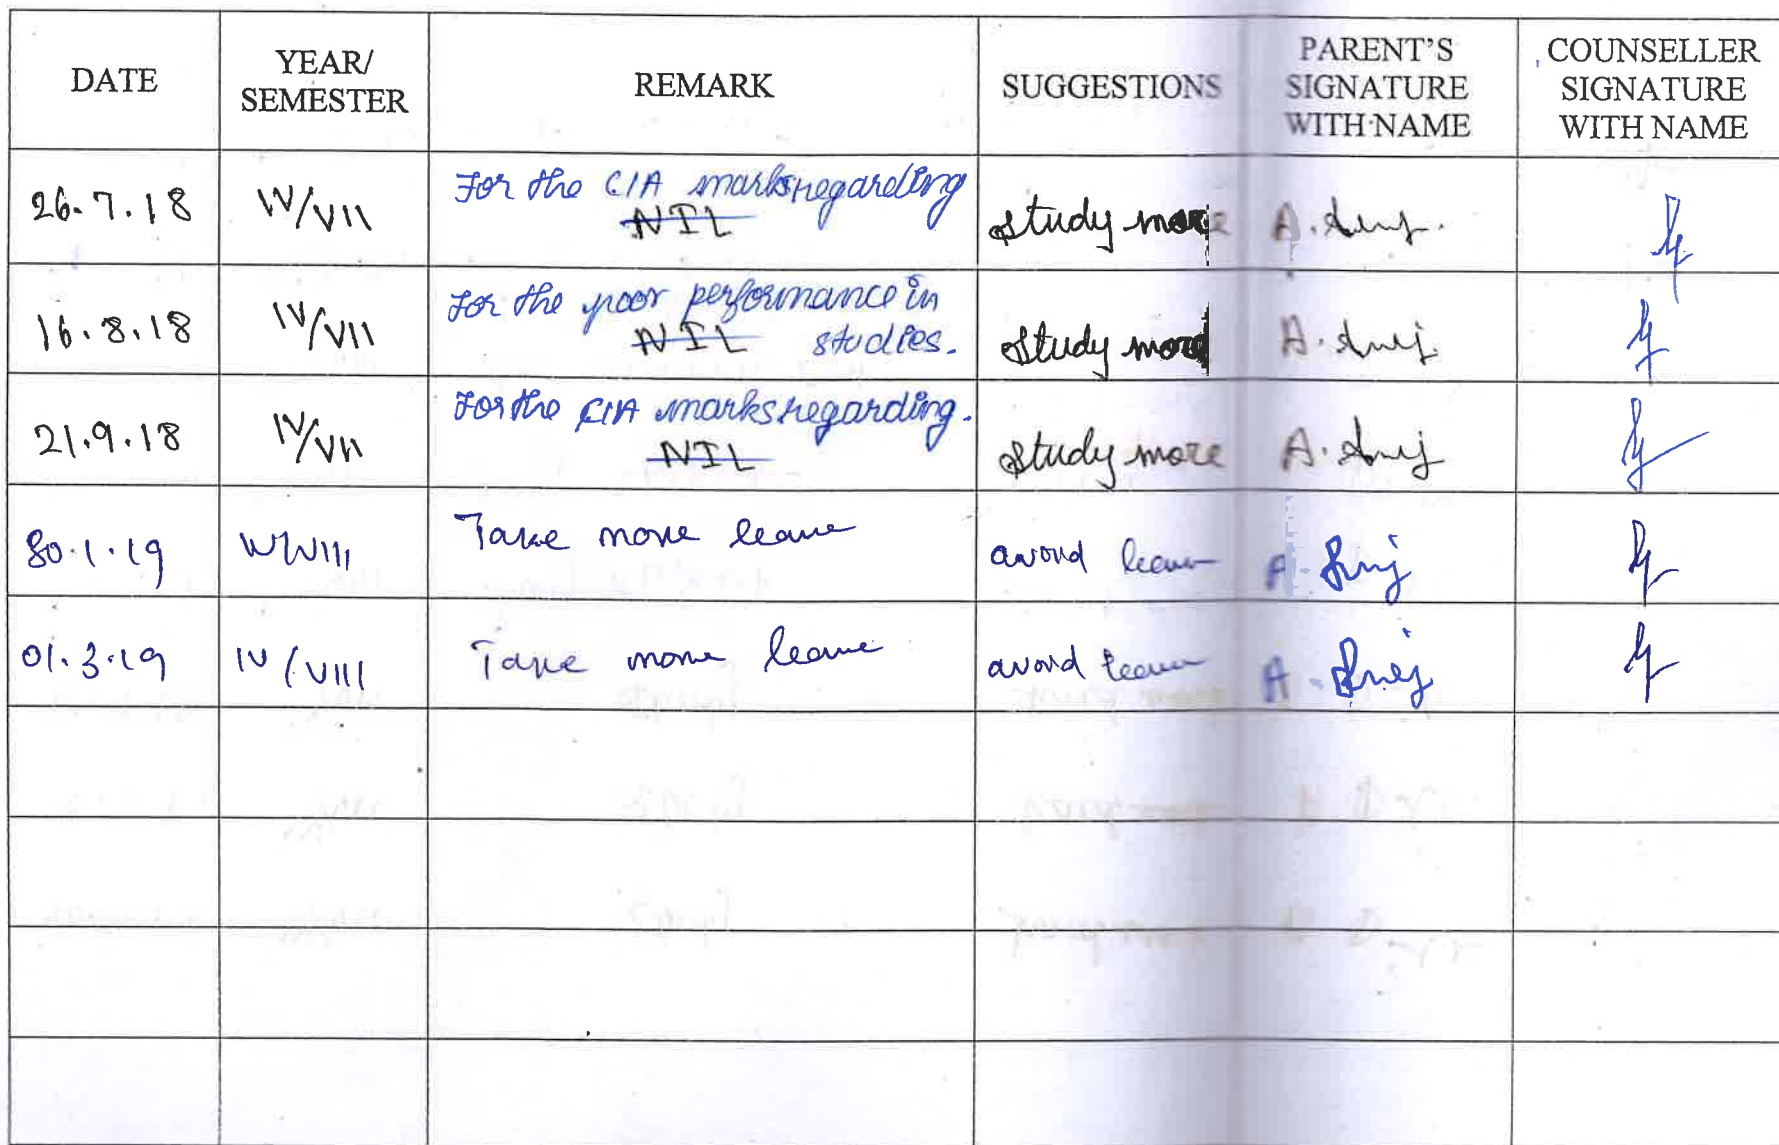 DATE YEAR/ SEMESTER REMARK SUGGESTIONS PARENT'S SIGNATURE WITH NAME COUNSELLER SIGNATURE WITH NAME
26.7.18 IV/VII For the CIA marks regarding
NIL study more
16.8.18 IV/VII For the poor performance in
NIL studies. study more
21.9.18 IV/VII For the CIA marks regarding.
NIL study more
30.1.19 IV/VIII Take more leave avoid leave
01.3.19 IV/VIII Take more leave avoid leave